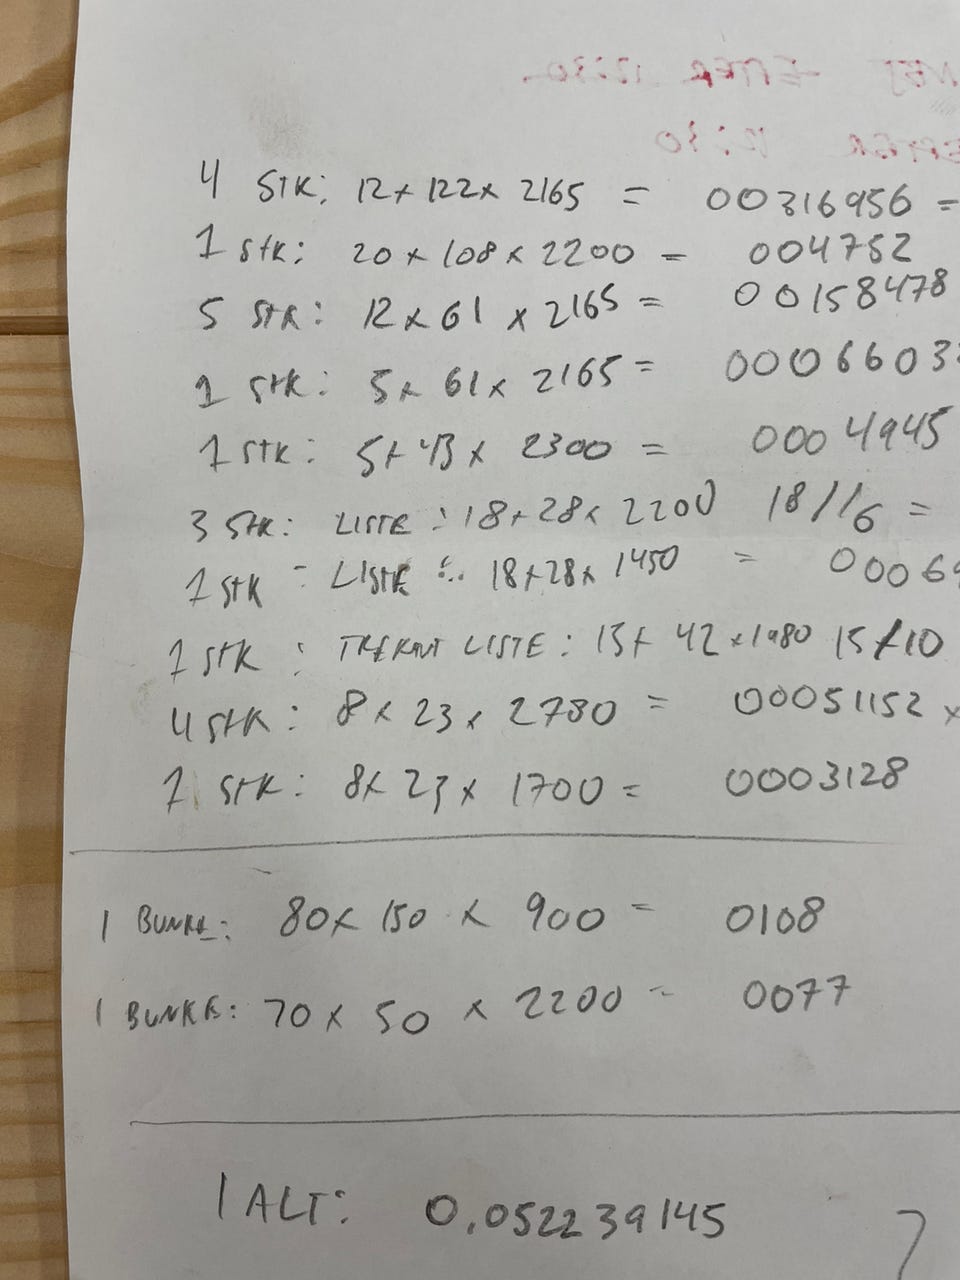 NEJ - EFTER 12:30
EFTER 12:30
4 STK: 12 x 122 x 2165 = 00316956 =
1 stk: 20 x 108 x 2200 = 004752
5 STK: 12 x 61 x 2165 = 00158478
1 STK: 5 x 61 x 2165 = 0006603
1 STK: 5 x 43 x 2300 = 0004945
3 STK: LISTE: 18 x 28 x 2200 18/16 =
1 STK - LISTE: 18 x 28 x 1450 = 00069
1 STK: TREKANT LISTE: 15 x 42 x 1980 15/10
4 STK: 8 x 23 x 2780 = 00051152 x
1 STK: 8 x 23 x 1700 = 0003128
1 BUNKE: 80 x 150 x 900 = 0108
1 BUNKE: 70 x 50 x 2200 = 0077
I ALT: 0.052239145